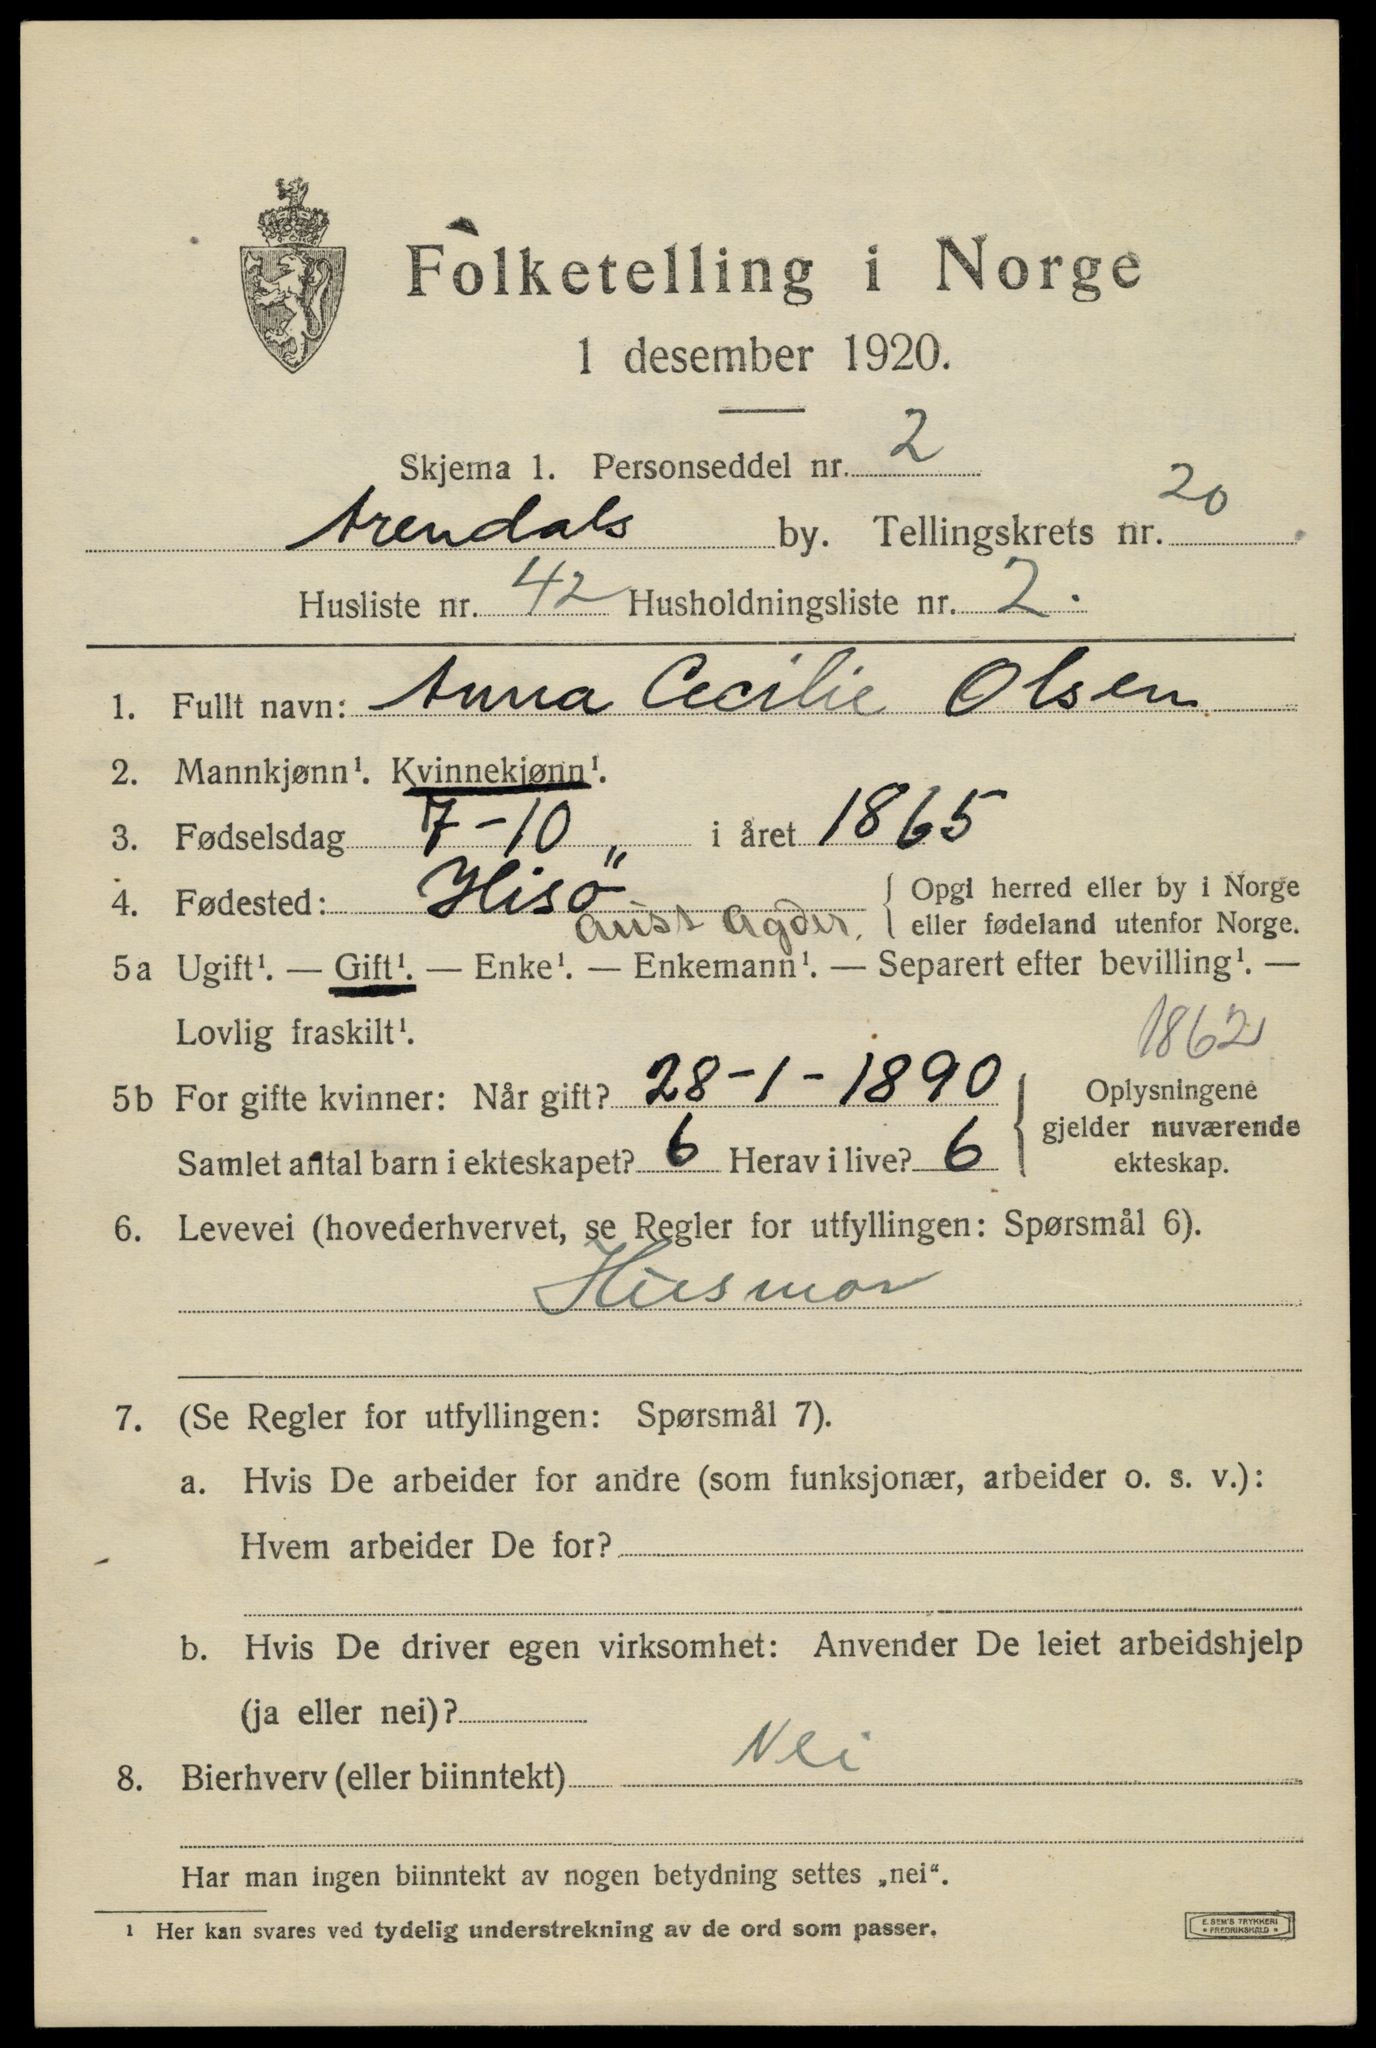 Folketelling i Norge
1 desember 1920.
Skjema 1. Personseddel nr. 2
Arendals by. Tellingskrets nr. 20
Husliste nr. 42 Husholdningsliste nr. 2.
1. Fullt navn: Anna Cecilie Olsen
2. Mannkjønn¹. Kvinnekjønn¹.
3. Fødselsdag 7-10 i året 1865
4. Fødested: Hisö { Opgi herred eller by i Norge
Aust Agder. eller fødeland utenfor Norge.
5a Ugift¹. — Gift¹. — Enke¹. — Enkemann¹. — Separert efter bevilling¹. —
Lovlig fraskilt¹.
1862
5b For gifte kvinner: Når gift? 28-1-1890 } Oplysningene
gjelder nuværende
Samlet antal barn i ekteskapet? 6 Herav i live? 6 ekteskap.
6. Levevei (hovederhvervet, se Regler for utfyllingen: Spørsmål 6).
Husmor
7. (Se Regler for utfyllingen: Spørsmål 7).
a. Hvis De arbeider for andre (som funksjonær, arbeider o. s. v.):
Hvem arbeider De for?
b. Hvis De driver egen virksomhet: Anvender De leiet arbeidshjelp
(ja eller nei)?
8. Bierhverv (eller biinntekt) Nei
Har man ingen biinntekt av nogen betydning settes „nei“.
¹ Her kan svares ved tydelig understrekning av de ord som passer.
E. SEM'S TRYKKERI
• FREDRIKSHALD •